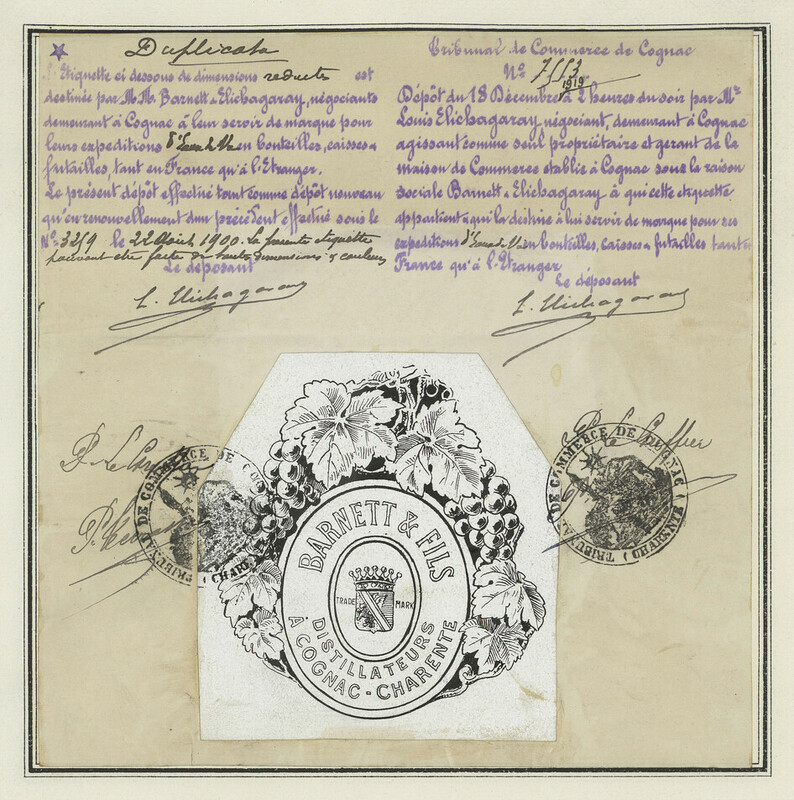 Duplicata
L'Etiquette ci dessous de dimensions réduites est
destinée par M.M. Barnett & Elichagaray, négociants
demeurant à Cognac à leur servir de marque pour
leurs expeditions d'Eaux de Vie en bouteilles, caisses &
futailles, tant en France qu'à l'Etranger.
Le présent dépôt effectué tant comme dépôt nouveau
qu'en renouvellement d'un précédent effectué sous le
No 3259 le 22 Août 1900. La présente étiquette
pouvant être faite de toutes dimensions & couleurs
Le déposant
L. Elichagaray
Tribunal de Commerce de Cognac
No 7553
1919
Dépôt du 18 Décembre à 2 heures du soir par Mr
Louis Elichagaray, négociant, demeurant à Cognac
agissant comme seul propriétaire et gerant de la
maison de Commerce établie à Cognac sous la raison
sociale Barnett & Elichagaray à qui cette etiquette
appartient & qui la destine à lui servir de marque pour ses
expeditions d'Eaux de Vie en bouteilles, caisses & futailles tant en
France qu'à l'Etranger
Le déposant
L. Elichagaray
TRIBUNAL DE COMMERCE DE COGNAC (CHARENTE)
P. Le Greffier
TRIBUNAL DE COMMERCE DE COGNAC (CHARENTE)
BARNETT & FILS
TRADE MARK
DISTILLATEURS
À COGNAC - CHARENTE